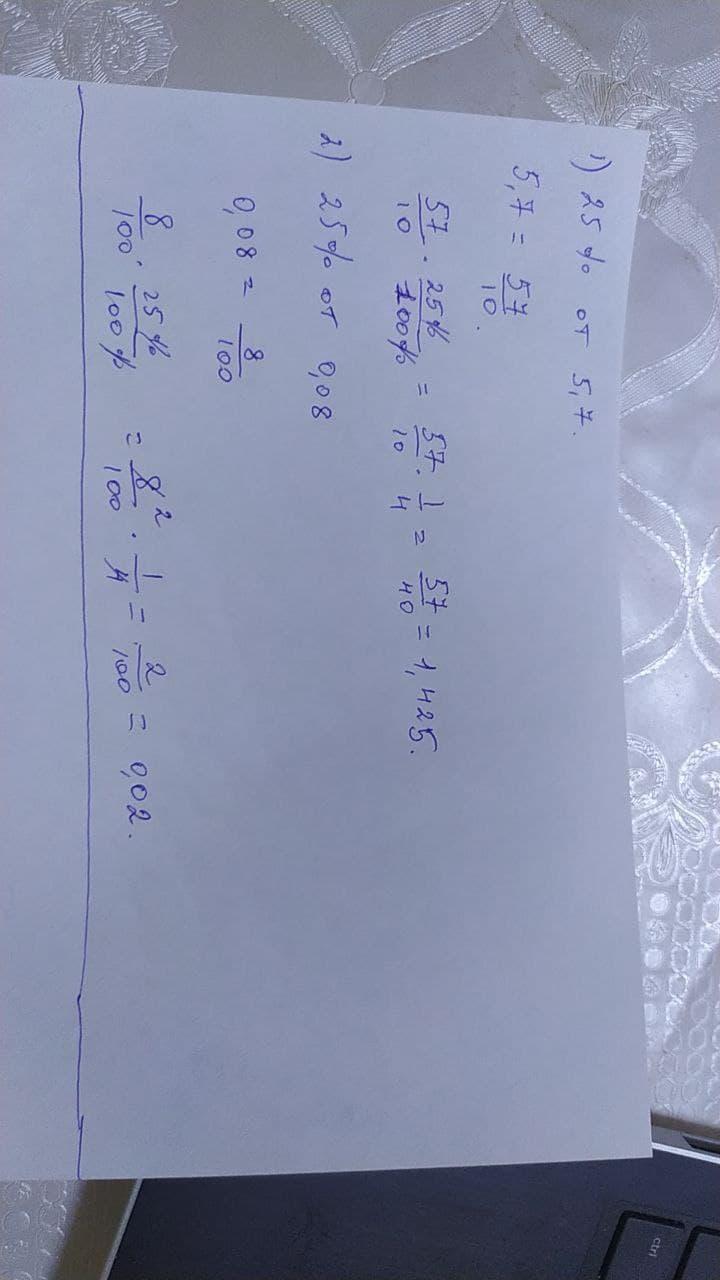 1) 25% от 5,7.
5,7 = 57/10.
57/10 · 25%/100% = 57/10 · 1/4 = 57/40 = 1,425.
2) 25% от 0,08
0,08 = 8/100
8/100 · 25%/100% = 8²/100 · 1/4 = 2/100 = 0,02.
ctrl